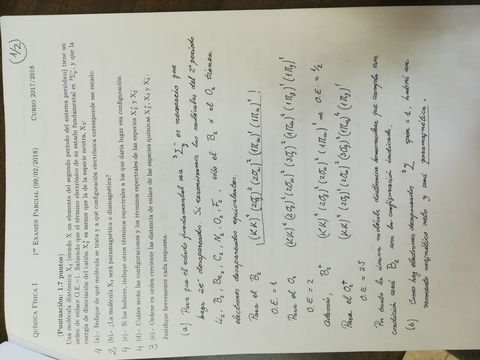 (1/2)
QUÍMICA FÍSICA I CURSO 2017/2018
1er EXAMEN PARCIAL (09/02/2018)
(Puntuación: 1,7 puntos)
Una molécula diatómica X2 (siendo X un elemento del segundo período del sistema periódico) tiene un
orden de enlace O.E.=1. Sabiendo que el término electrónico de su estado fundamental es 3Σg−, y que la
energía de disociación del catión X2+ es menor que la de la especie neutra, X2.
4 (a).- Indique de qué molécula se trata y a qué configuración electrónica corresponde ese estado
2 (b).- ¿La molécula X2 será paramagnética o diamagnética?
4 (c).- Si los hubiere, indique otros términos espectrales a los que daría lugar esa configuración.
4 (d).- Cuáles serán las configuraciones y los términos espectrales de las especies X2+ y X2−
3 (e).- Ordene en orden creciente las distancia de enlace de las especies químicas X2+, X2 y X2−.
Justifique brevemente cada respuesta.
(a) Para que el estado fundamental sea 3Σg− es necesario que
haya 2e− desapareados. Si examinamos las moléculas del 2º periodo
Li2, B2, Be2, C2, N2, O2, F2, sólo el B2 o el O2 tienen
electrones desapareados equivalentes.
Para el B2
O.E. = 1
Para el O2
O.E. = 2
Además, B2+ O.E. = 1/2
Para el O2+
O.E. = 2.5
Por tanto la única molécula diatómica homonuclear que cumple esa
condición será B2 con la configuración indicada.
(b) Como hay electrones desapareados 3Σ spin = 1, habrá un
momento magnético neto y será paramagnética.